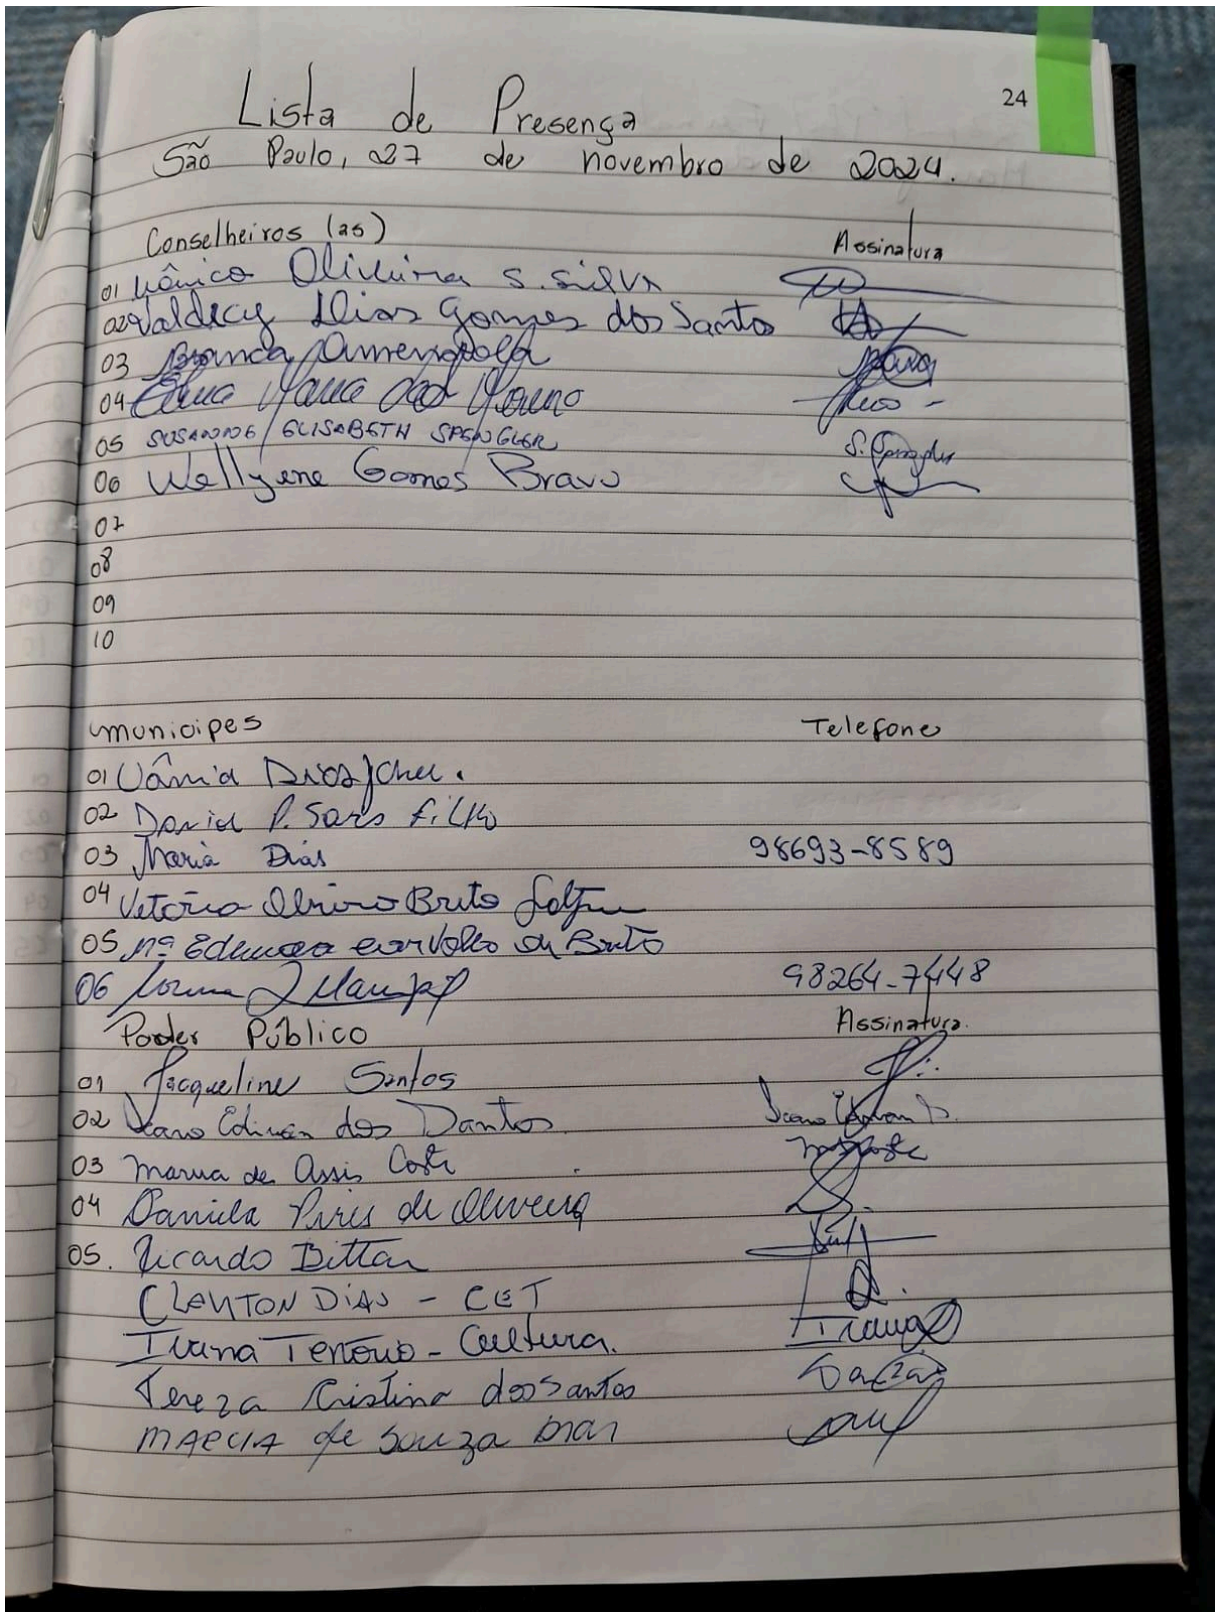 24
Lista de Presença
São Paulo, 27 de novembro de 2024.
Conselheiros (as) Assinatura
01 Vânico Oliveira S. Silva
02 Valdecy Dias Gomes dos Santos
03 Branca
04 Maria das
05 SUSANNE ELISABETH SPENGLER S. Spengler
06 Wellyene Gomes Bravo
07
08
09
10
municipes Telefone
01 Vânia Dias
02 Daniel P. Sars Filho
03 Maria Dias 98693-8589
04 Vitória Brito
05 Mª Carvalho de Brito
06 98264-7448
Poder Público Assinatura
01 Jacqueline Santos
02 Edivan dos Santos
03 Maria de Assis Costa
04 Daniela Pires de Oliveira
05. Ricardo Bittar
CLEYTON DIAS - CET
Ivana Tenório - Cultura. Ivana
Tereza Cristina dos Santos
MARCIA de Souza Dias